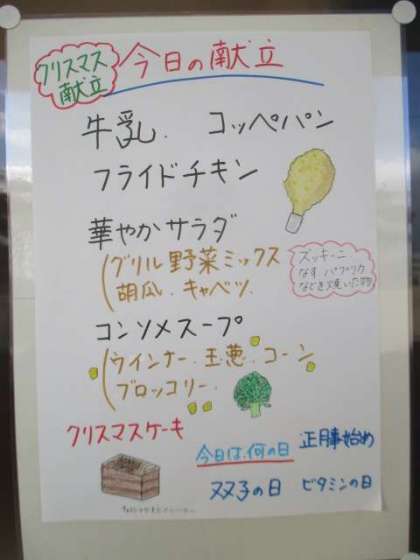 クリスマス
献立
今日の献立
牛乳. コッペパン
フライドチキン
華やかサラダ
グリル野菜ミックス
胡瓜. キャベツ.
ズッキーニ
なす パプリカ
などを焼いた物
コンソメスープ
ウインナー. 玉葱. コーン
ブロッコリー.
クリスマスケーキ
今日は何の日
正月事始め
双子の日 ビタミンの日